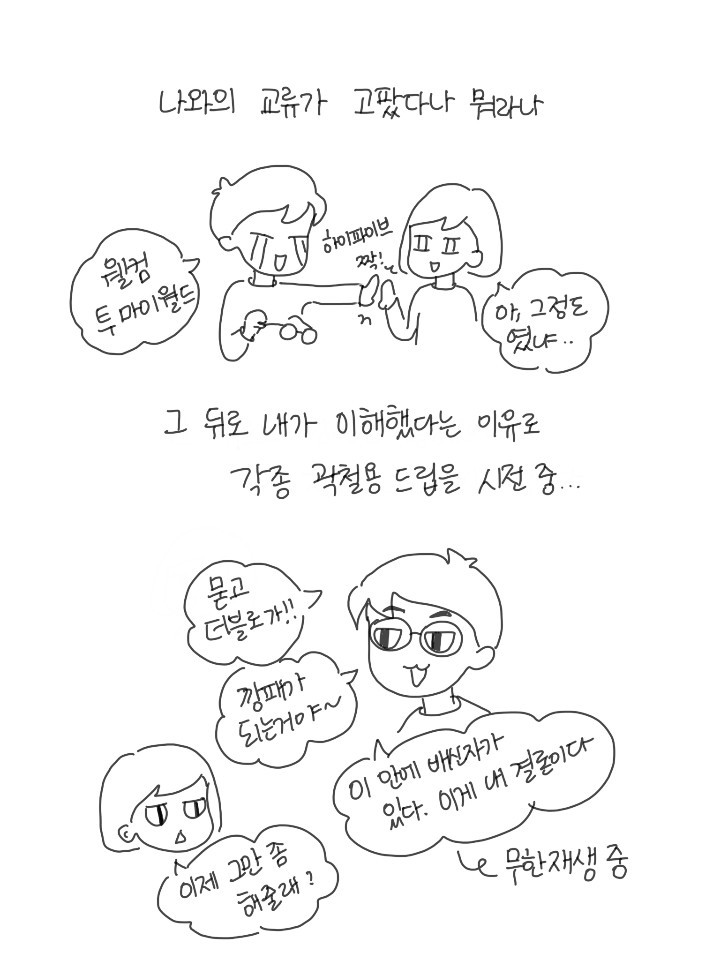 나와의 교류가 고팠다나 뭐라나
웰컴
투 마이월드
하이파이브
짝!
아, 그정도
였냐..
그 뒤로 내가 이해했다는 이유로
각종 곽철용 드립을 시전 중...
묻고
더블로가!!
깡패가
되는거야~
이 안에 배신자가
있다. 이게 내 결론이다
무한재생 중
이제 그만 좀
해줄래?